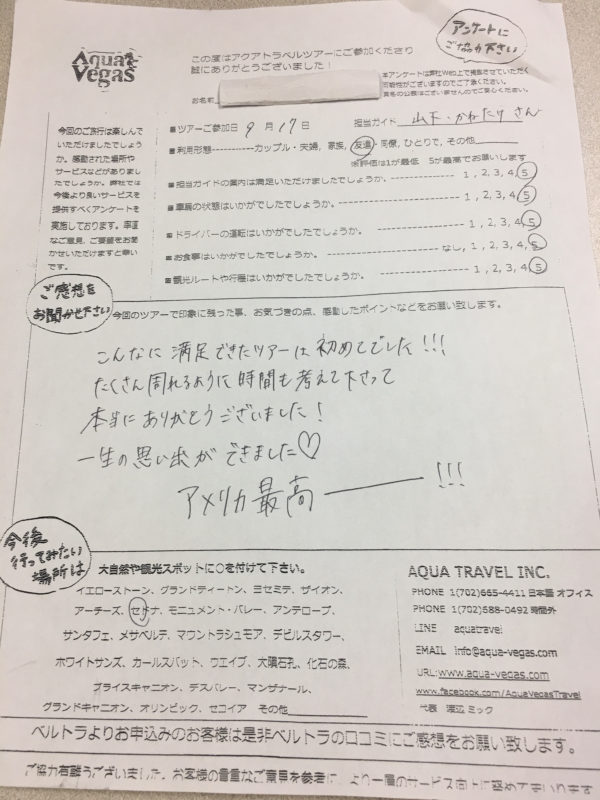 アンケートに
ご協力下さい
Aqua Vegas
この度はアクアトラベルツアーにご参加くださり
誠にありがとうございました！
本アンケートは弊社Web上で掲載させていただく
可能性がございますのでご了承ください。
実名の公表はございませんのでご安心ください。
お名前
今回のご旅行は楽しんで
いただけましたでしょう
か。感動された場所や
サービスなどがありまし
たでしょうか。弊社では
今後より良いサービスを
提供すべくアンケートを
実施しております。率直
なご意見、ご要望をお聞
かせいただけますと幸い
です。
■ツアーご参加日 9 月 17 日 担当ガイド 山下・かねたり さん
■利用形態------------カップル・夫婦, 家族, 友達・同僚, ひとりで, その他
※評価は1が最低 5が最高でお願いします
■担当ガイドの案内は満足いただけましたでしょうか。 1, 2, 3, 4, 5
■車輌の状態はいかがでしたでしょうか。 1, 2, 3, 4, 5
■ドライバーの運転はいかがでしたでしょうか。 1, 2, 3, 4, 5
■お食事はいかがでしたでしょうか。 なし, 1, 2, 3, 4, 5
■観光ルートや行程はいかがでしたでしょうか。 1, 2, 3, 4, 5
ご感想を
お聞かせ下さい
今回のツアーで印象に残った事、お気づきの点、感動したポイントなどをお願い致します。
こんなに満足できたツアーは初めてでした!!!
たくさん周れるように時間も考えて下さって
本当にありがとうございました！
一生の思い出ができました♡
アメリカ最高―――!!!
今後
行ってみたい
場所は
大自然や観光スポットに○を付けて下さい。
イエローストーン、グランドティートン、ヨセミテ、ザイオン、
アーチーズ、セドナ、モニュメント・バレー、アンテロープ、
サンタフェ、メサベルデ、マウントラシュモア、デビルスタワー、
ホワイトサンズ、カールスバット、ウエイブ、大隕石孔、化石の森、
ブライスキャニオン、デスバレー、マンザナール、
グランドキャニオン、オリンピック、セコイア その他
AQUA TRAVEL INC.
PHONE 1(702)665-4411 日本語 オフィス
PHONE 1(702)688-0492 時間外
LINE aquatravel
EMAIL info@aqua-vegas.com
URL:www.aqua-vegas.com
www.facebook.com/AquaVegasTravel
代表 渡辺 ミック
ベルトラよりお申込みのお客様は是非ベルトラの口コミにご感想をお願い致します。
ご協力有難うございました。お客様の貴重なご意見を参考に、より一層のサービス向上に努めてまいります